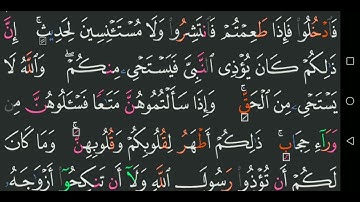 فَٱدْخُلُوا۟ فَإِذَا طَعِمْتُمْ فَٱنتَشِرُوا۟ وَلَا مُسْتَـْٔنِسِينَ لِحَدِيثٍ ۚ إِنَّ
ذَٰلِكُمْ كَانَ يُؤْذِى ٱلنَّبِىَّ فَيَسْتَحْىِۦ مِنكُمْ ۖ وَٱللَّهُ لَا
يَسْتَحْىِۦ مِنَ ٱلْحَقِّ ۚ وَإِذَا سَأَلْتُمُوهُنَّ مَتَـٰعًا فَسْـَٔلُوهُنَّ مِن
وَرَآءِ حِجَابٍ ۚ ذَٰلِكُمْ أَطْهَرُ لِقُلُوبِكُمْ وَقُلُوبِهِنَّ ۚ وَمَا كَانَ
لَكُمْ أَن تُؤْذُوا۟ رَسُولَ ٱللَّهِ وَلَآ أَن تَنكِحُوٓا۟ أَزْوَٰجَهُۥ